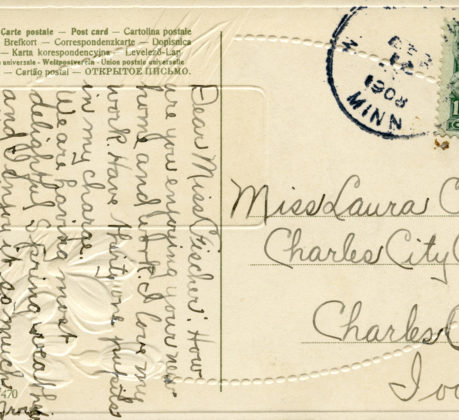 Carte postale — Post card — Cartolina postale
Brefkort — Correspondenzkarte — Dopisnica
— Karta korespondencyjna — Levelező-Lap
universale - Weltpostverein - Union postale universelle
— Cartão postal — ОТКРЫТОЕ ПИСЬМО.
MINN
1908
1
Dear Miss Fischer: How
are you enjoying your new
home and work. I love my
work. Have thirty one pupils
in my charge.
We are having most
delightful Spring weather
and I enjoy it so much
from
Miss Laura
Charles City
Charles
Iow
470